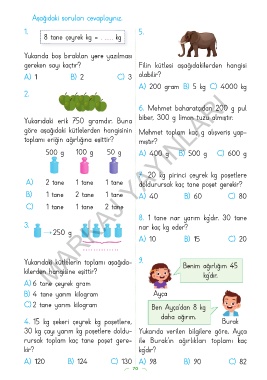 Aşağıdaki soruları cevaplayınız.
1.
8 tane çeyrek kg = ...... kg
Yukarıda boş bırakılan yere yazılması
gereken sayı kaçtır?
A) 1 B) 2 C) 3
2.
Yukarıdaki erik 750 gramdır. Buna
göre aşağıdaki kütlelerden hangisinin
toplamı eriğin ağırlığına eşittir?
500 g 100 g 50 g
A) 2 tane 1 tane 1 tane
B) 1 tane 2 tane 1 tane
C) 1 tane 1 tane 2 tane
3.
250 g
Yukarıdaki kütlelerin toplamı aşağıda-
kilerden hangisine eşittir?
A) 6 tane çeyrek gram
B) 4 tane yarım kilogram
C) 2 tane yarım kilogram
4. 15 kg şekeri çeyrek kg poşetlere,
30 kg çayı yarım kg poşetlere doldu-
rursak toplam kaç tane poşet gere-
kir?
A) 120 B) 124 C) 130
5.
Filin kütlesi aşağıdakilerden hangisi
olabilir?
A) 200 gram B) 5 kg C) 4000 kg
6. Mehmet baharatçıdan 200 g pul
biber, 300 g limon tuzu almıştır.
Mehmet toplam kaç g alışveriş yap-
mıştır?
A) 400 g B) 500 g C) 600 g
7. 20 kg pirinci çeyrek kg poşetlere
doldurursak kaç tane poşet gerekir?
A) 40 B) 60 C) 80
8. 1 tane nar yarım kg'dır. 30 tane
nar kaç kg eder?
A) 10 B) 15 C) 20
9.
Benim ağırlığım 45
kg'dır.
Ayça
Ben Ayça'dan 8 kg
daha ağırım.
Burak
Yukarıda verilen bilgilere göre, Ayça
ile Burak'ın ağırlıkları toplamı kaç
kg'dır?
A) 98 B) 90 C) 82